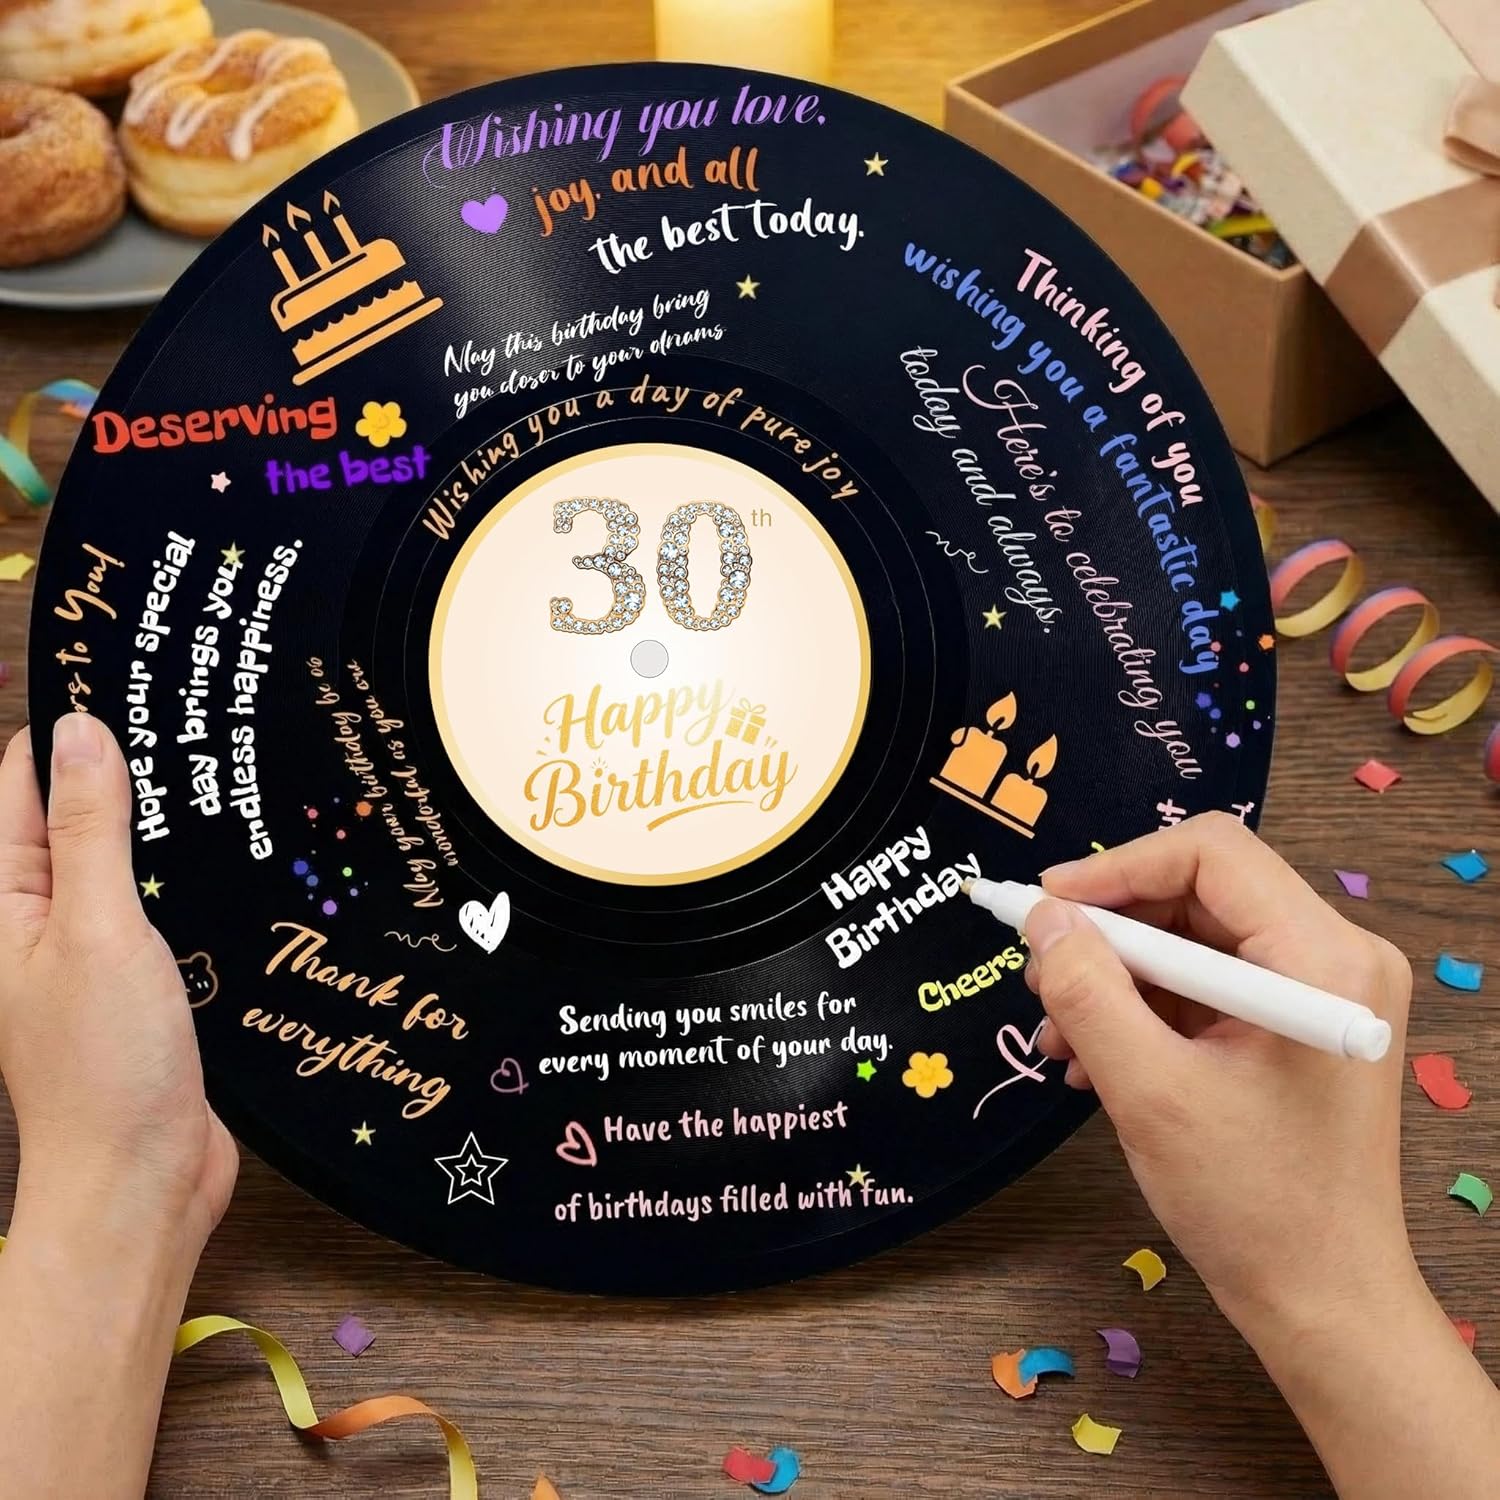 Wishing you love,
joy, and all
the best today.
May this birthday bring
you closer to your dreams
Wishing you a day of pure joy
Deserving
the best
30th
Happy
Birthday
Thinking of you
wishing you a fantastic day
Here's to celebrating you
today and always.
to You!
Hope your special
day brings you
endless happiness.
May your birthday be as
wonderful as you are
me
me
Thank for
everything
Happy
Birthday
Cheers
Sending you smiles for
every moment of your day.
Have the happiest
of birthdays filled with fun.